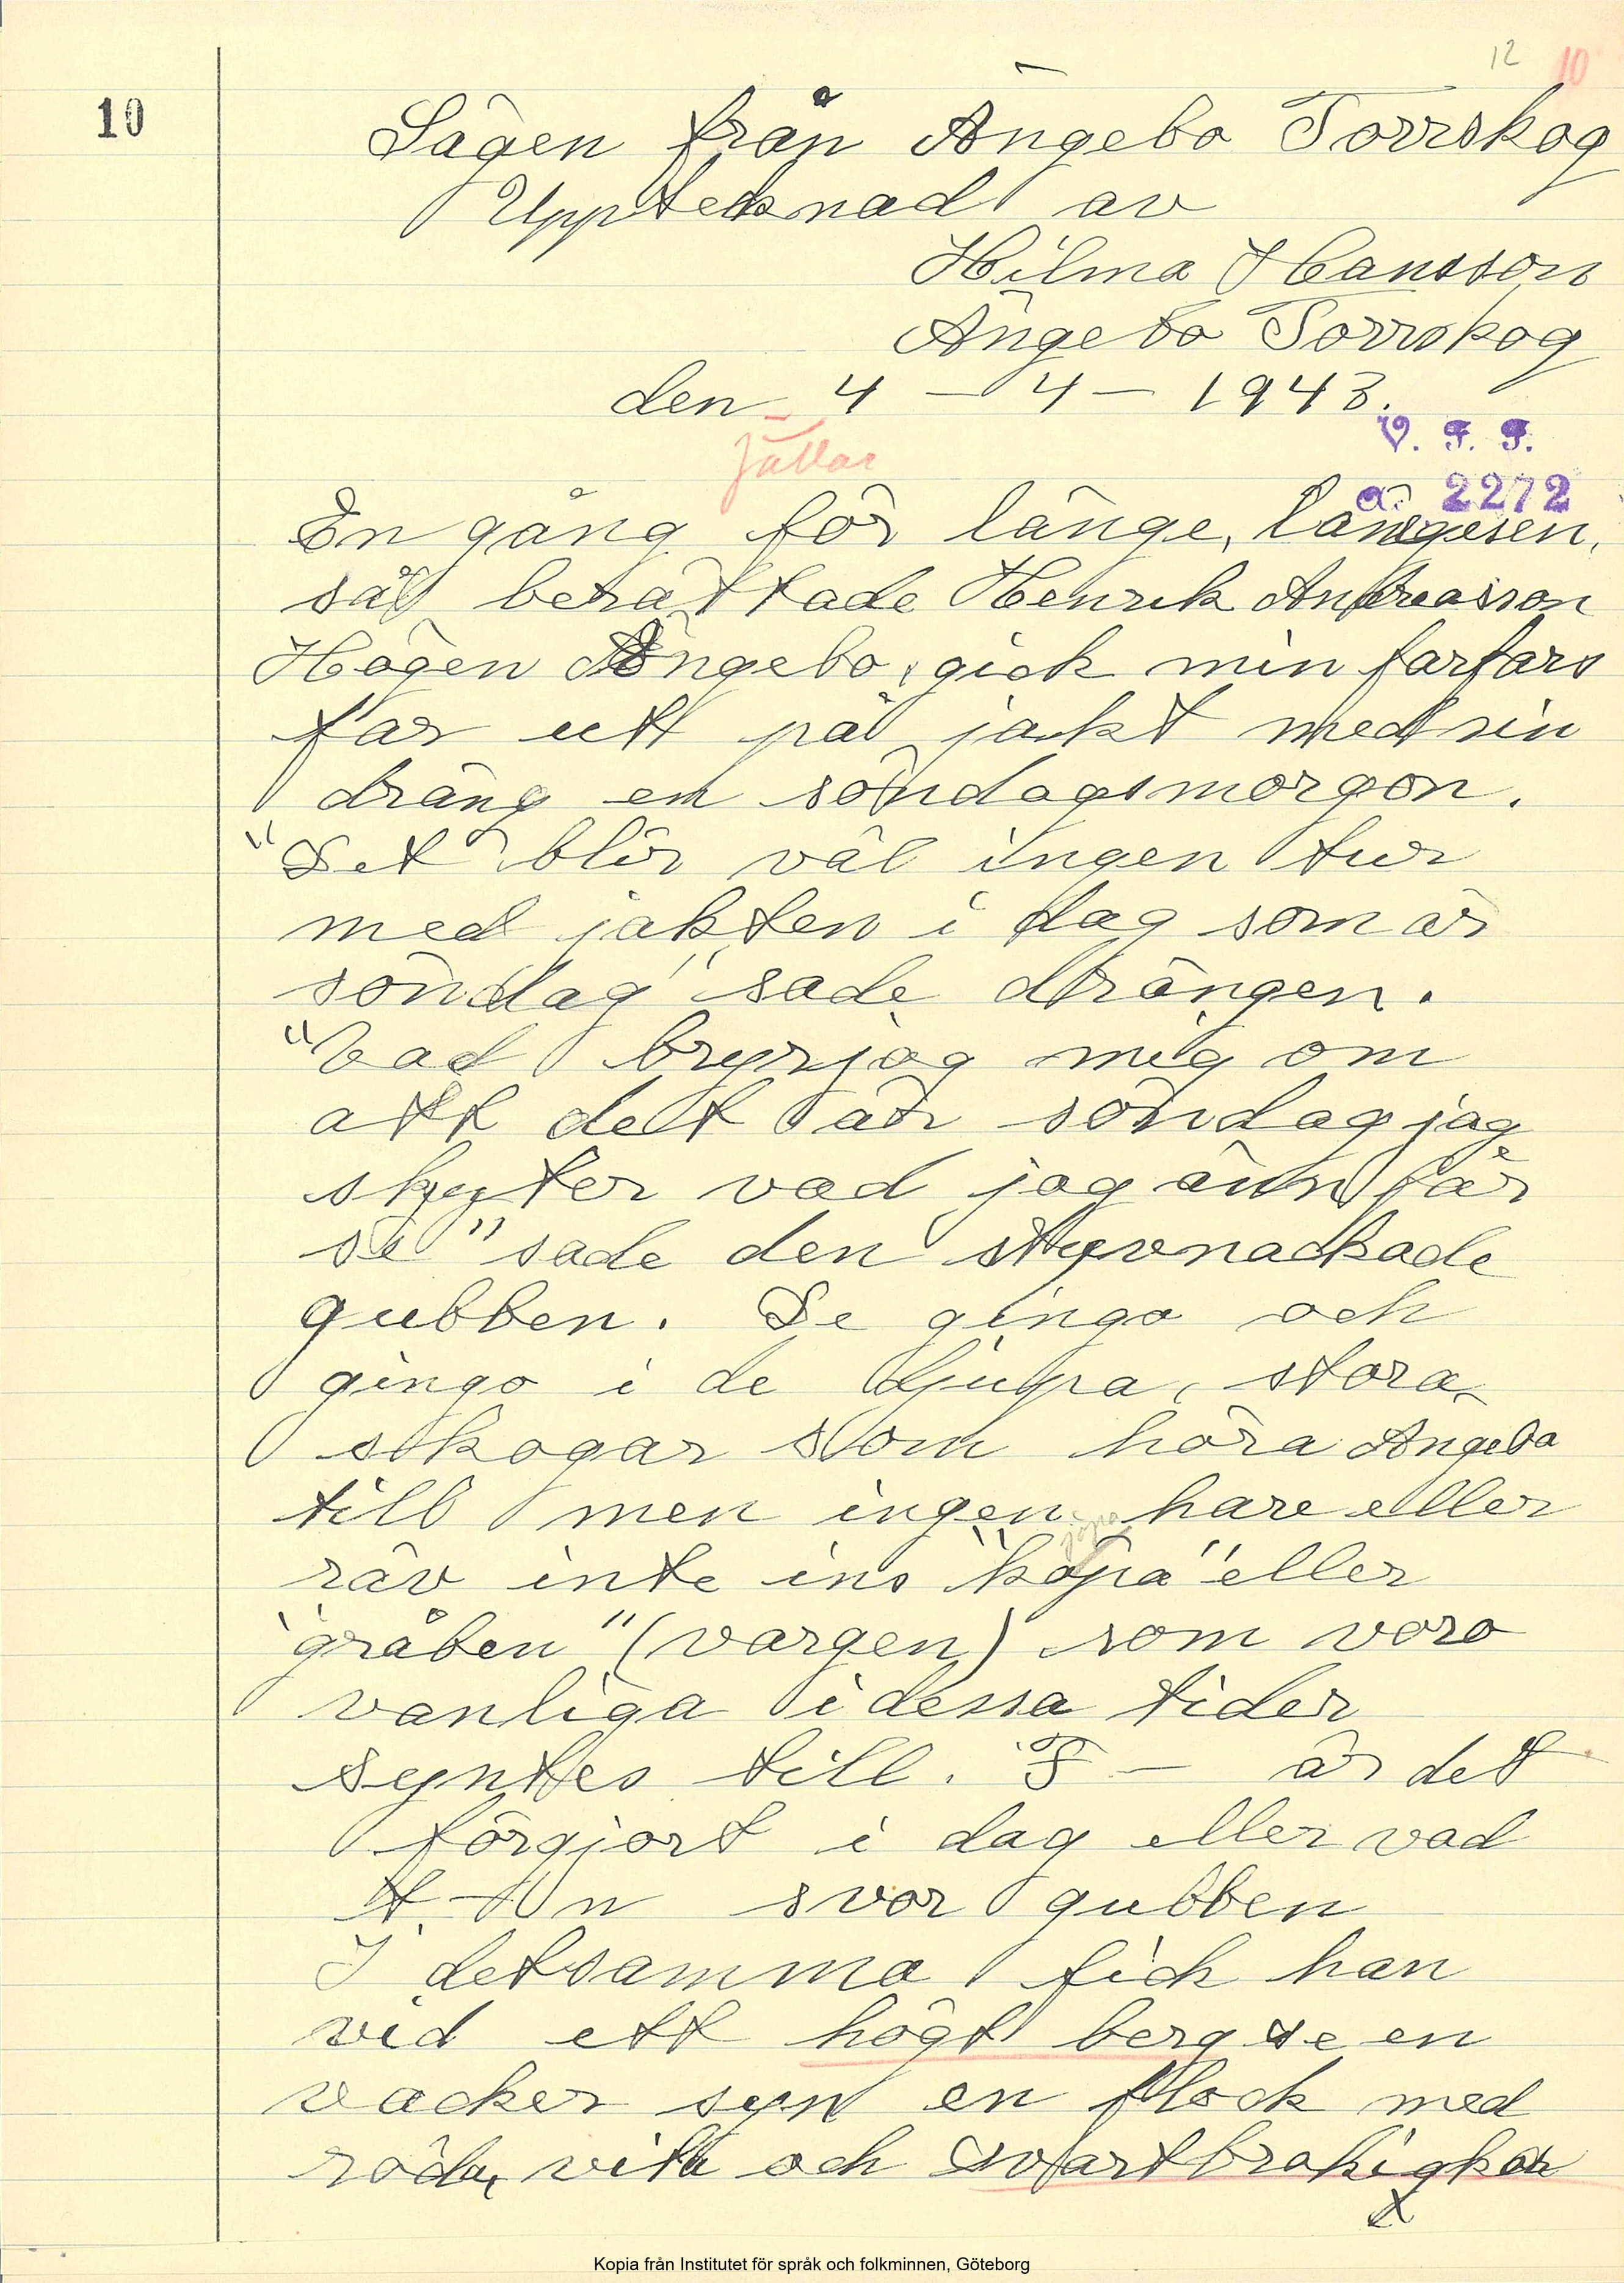 12 10
10
Sägen från Ängebo Torrskog
Upptecknad av
Hilma Hansson
Ängebo Torrskog
den 4 - 4 - 1943.
V. F. F.
Jättar
a. 2272
En gång för länge, längesen,
så berättade Henrik Andreasson
Högen Ängebo, gick min farfars
far ut på jakt med sin
dräng en söndagsmorgon.
"Det blir väl ingen tur
med jakten i dag som är
söndag" sade drängen.
"Vad bryr jag mig om
att det är söndag jag
skyter vad jag änn får
se" sade den styvnackade
gubben. De gingo och
gingo i de djupa, stora
skogar som höra Ängebo
till men ingen hare eller
räv inte ins "köpa" eller
"gråben" (vargen) som voro
vanliga i dessa tider
syntes till. F — är det
förgjort i dag eller vad
svor gubben
I detsamma fick han
vid ett högt berg se en
vacker syn en flock med
röda, vita och svartbrokig kor
x
Kopia från Institutet för språk och folkminnen, Göteborg